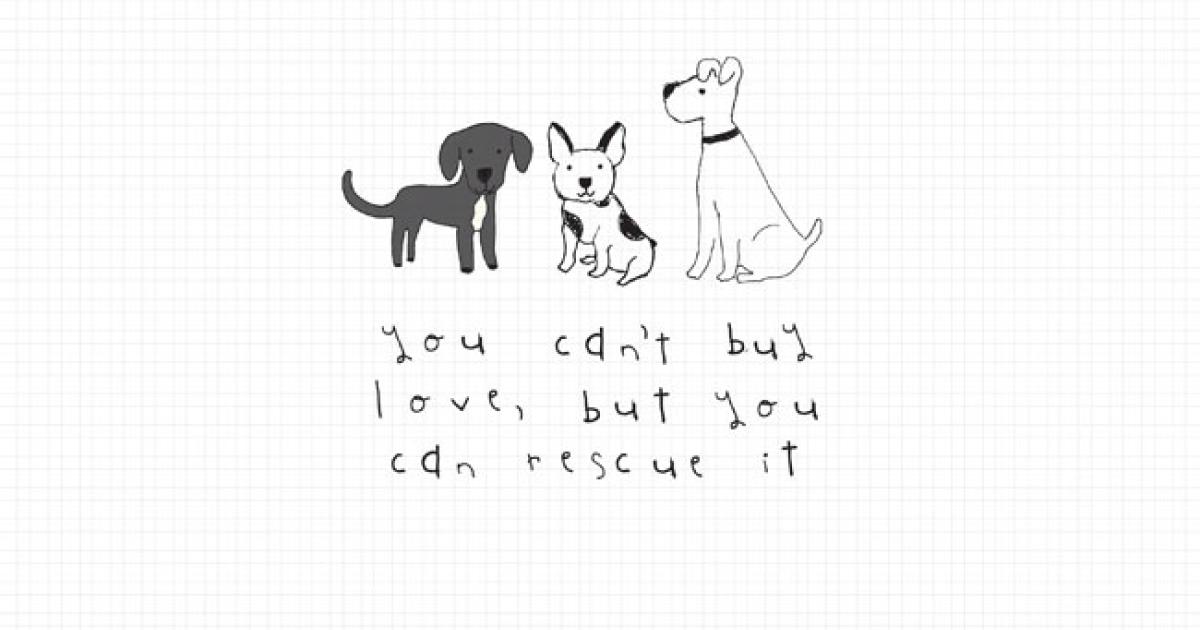 you can't buy
love, but you
can rescue it